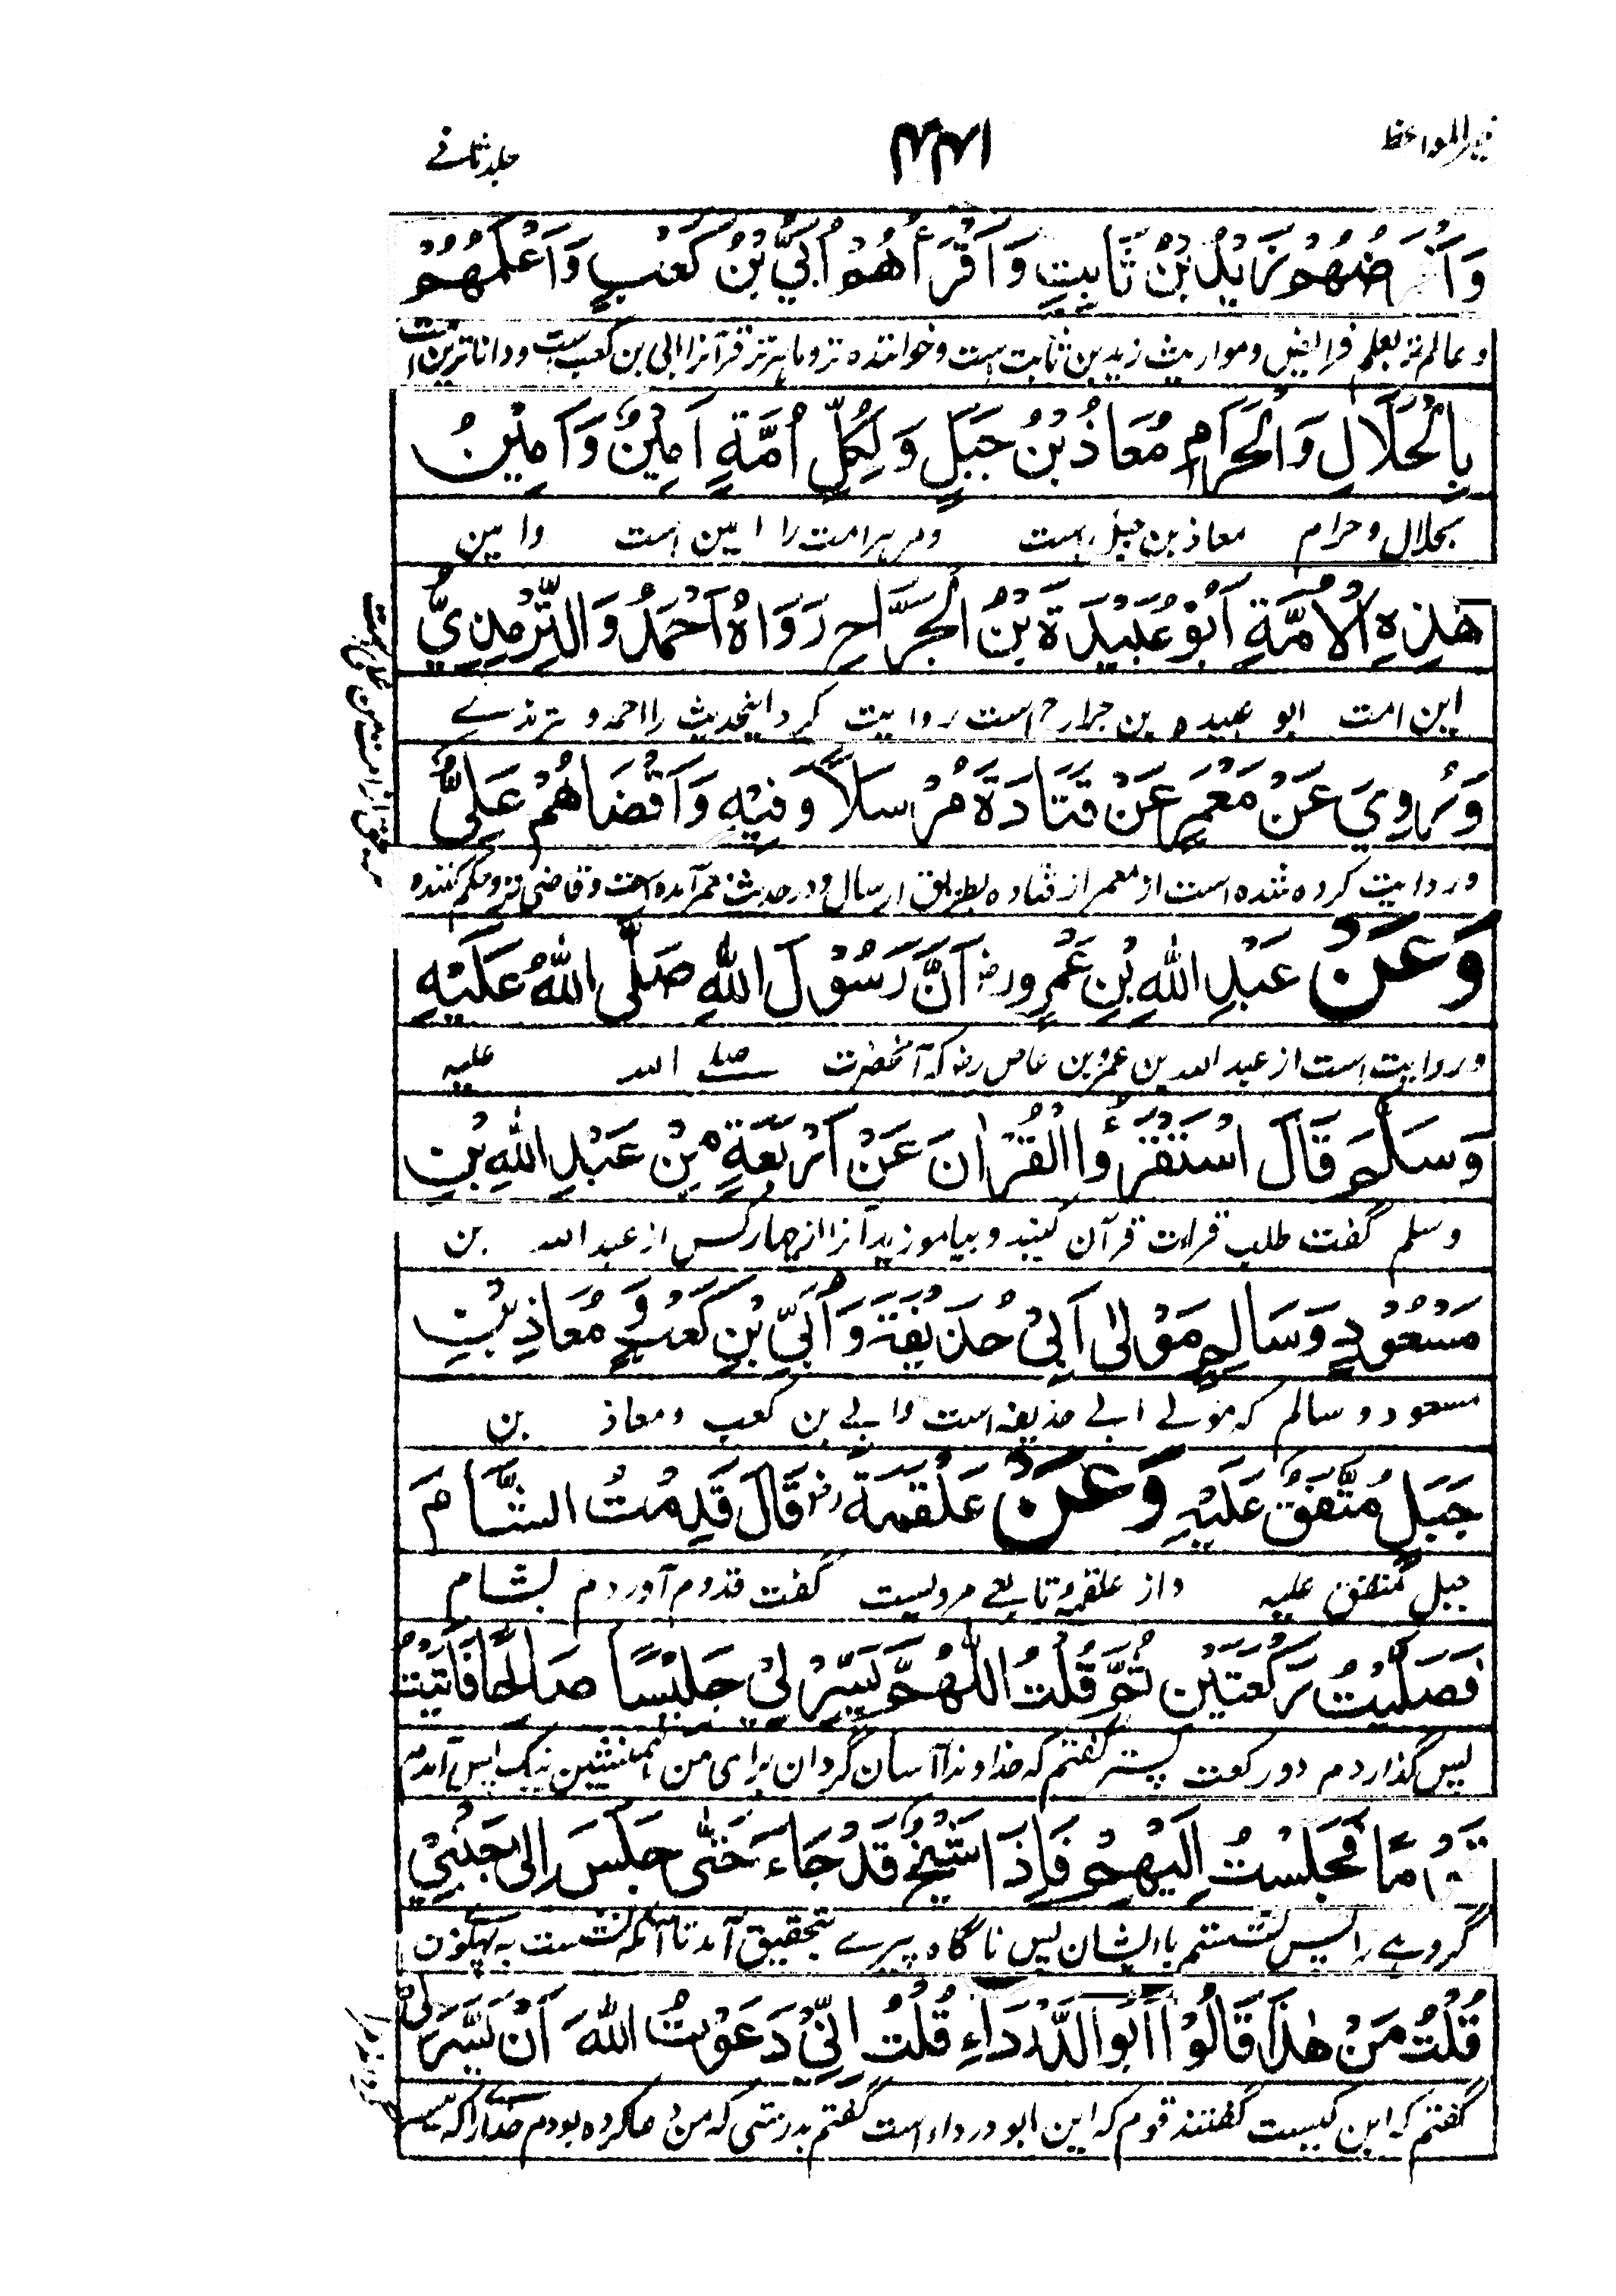 خیر المواعظ
۱۴۴
جلد ثانی
وَأَفْرَضُهُمْ زَيْدُ بْنُ ثَابِتٍ وَأَقْرَأُهُمْ أُبَيُّ بْنُ كَعْبٍ وَأَعْلَمُهُمْ
و عالم تر بعلم فرایض و مواریث زید بن ثابت است و خواننده تر و ماہرتر قرآن را ابی بن کعب است و داناترین امت
بِالْحَلَالِ وَالْحَرَامِ مُعَاذُ بْنُ جَبَلٍ وَلِكُلِّ أُمَّةٍ أَمِيْنٌ وَأَمِيْنُ
بحلال و حرام معاذ بن جبل است و مر ہر امت را امین است و امین
هٰذِهِ الْأُمَّةِ أَبُوْ عُبَيْدَةَ بْنُ الْجَرَّاحِ رَوَاهُ أَحْمَدُ وَالتِّرْمِذِيُّ
این امت ابو عبیدہ بن جراح است روایت کرد اینحدیث را احمد و ترمذے
وَرُوِيَ عَنْ مَعْمَرٍ عَنْ قَتَادَةَ مُرْسَلًا وَفِيْهِ وَأَقْضَاهُمْ عَلِيٌّ
و روایت کردہ شدہ است از معمر از قتادہ بطریق ارسال و در حدیث معمر آمدہ است و قاضی تر و حکم کنندہ
وَعَنْ عَبْدِ اللهِ بْنِ عَمْرٍو رض أَنَّ رَسُوْلَ اللهِ صَلَّى اللهُ عَلَيْهِ
و روایت است از عبد اللہ بن عمرو بن عاص رض کہ آنحضرت صلے اللہ علیہ
وَسَلَّمَ قَالَ اسْتَقْرَؤُا الْقُرْاٰنَ عَنْ أَرْبَعَةٍ مِنْ عَبْدِ اللهِ بْنِ
وسلم گفت طلب قراءت قرآن کنید و بیاموزید آنرا از چہار کس از عبد اللہ بن
مَسْعُوْدٍ وَسَالِمٍ مَوْلٰى أَبِيْ حُذَيْفَةَ وَأُبَيِّ بْنِ كَعْبٍ وَمُعَاذِ بْنِ
مسعود و سالم کہ مولے ابی حذیفہ است و ابی بن کعب و معاذ بن
جَبَلٍ مُتَّفَقٌ عَلَيْهِ وَعَنْ عَلْقَمَةَ رض قَالَ قَدِمْتُ الشَّامَ
جبل متفق علیہ و از علقمہ تابعے مرویست گفت قدوم آوردم بشام
فَصَلَّيْتُ رَكْعَتَيْنِ ثُمَّ قُلْتُ اللّٰهُمَّ يَسِّرْ لِيْ جَلِيْسًا صَالِحًا فَأَتَيْتُ
پس گذاردم دو رکعت پستر گفتم کہ خداوندا آسان گردان برای من ہمنشین نیک پس آمدم
قَوْمًا فَجَلَسْتُ إِلَيْهِمْ فَإِذَا شَيْخٌ قَدْ جَاءَ حَتّٰى جَلَسَ إِلٰى جَنْبِيْ
گروہے را پس نشستم با ایشان پس ناگاہ پیرے بتحقیق آمد تا آنکہ نشست بہ پہلوی من
قُلْتُ مَنْ هٰذَا قَالُوْا أَبُو الدَّرْدَاءِ قُلْتُ إِنِّيْ دَعَوْتُ اللهَ أَنْ يُيَسِّرَ لِيْ
گفتم کہ این کیست گفتند قوم کہ این ابو درداء است گفتم بدرستی کہ من دعا کردہ بودم خدایرا کہ میسر